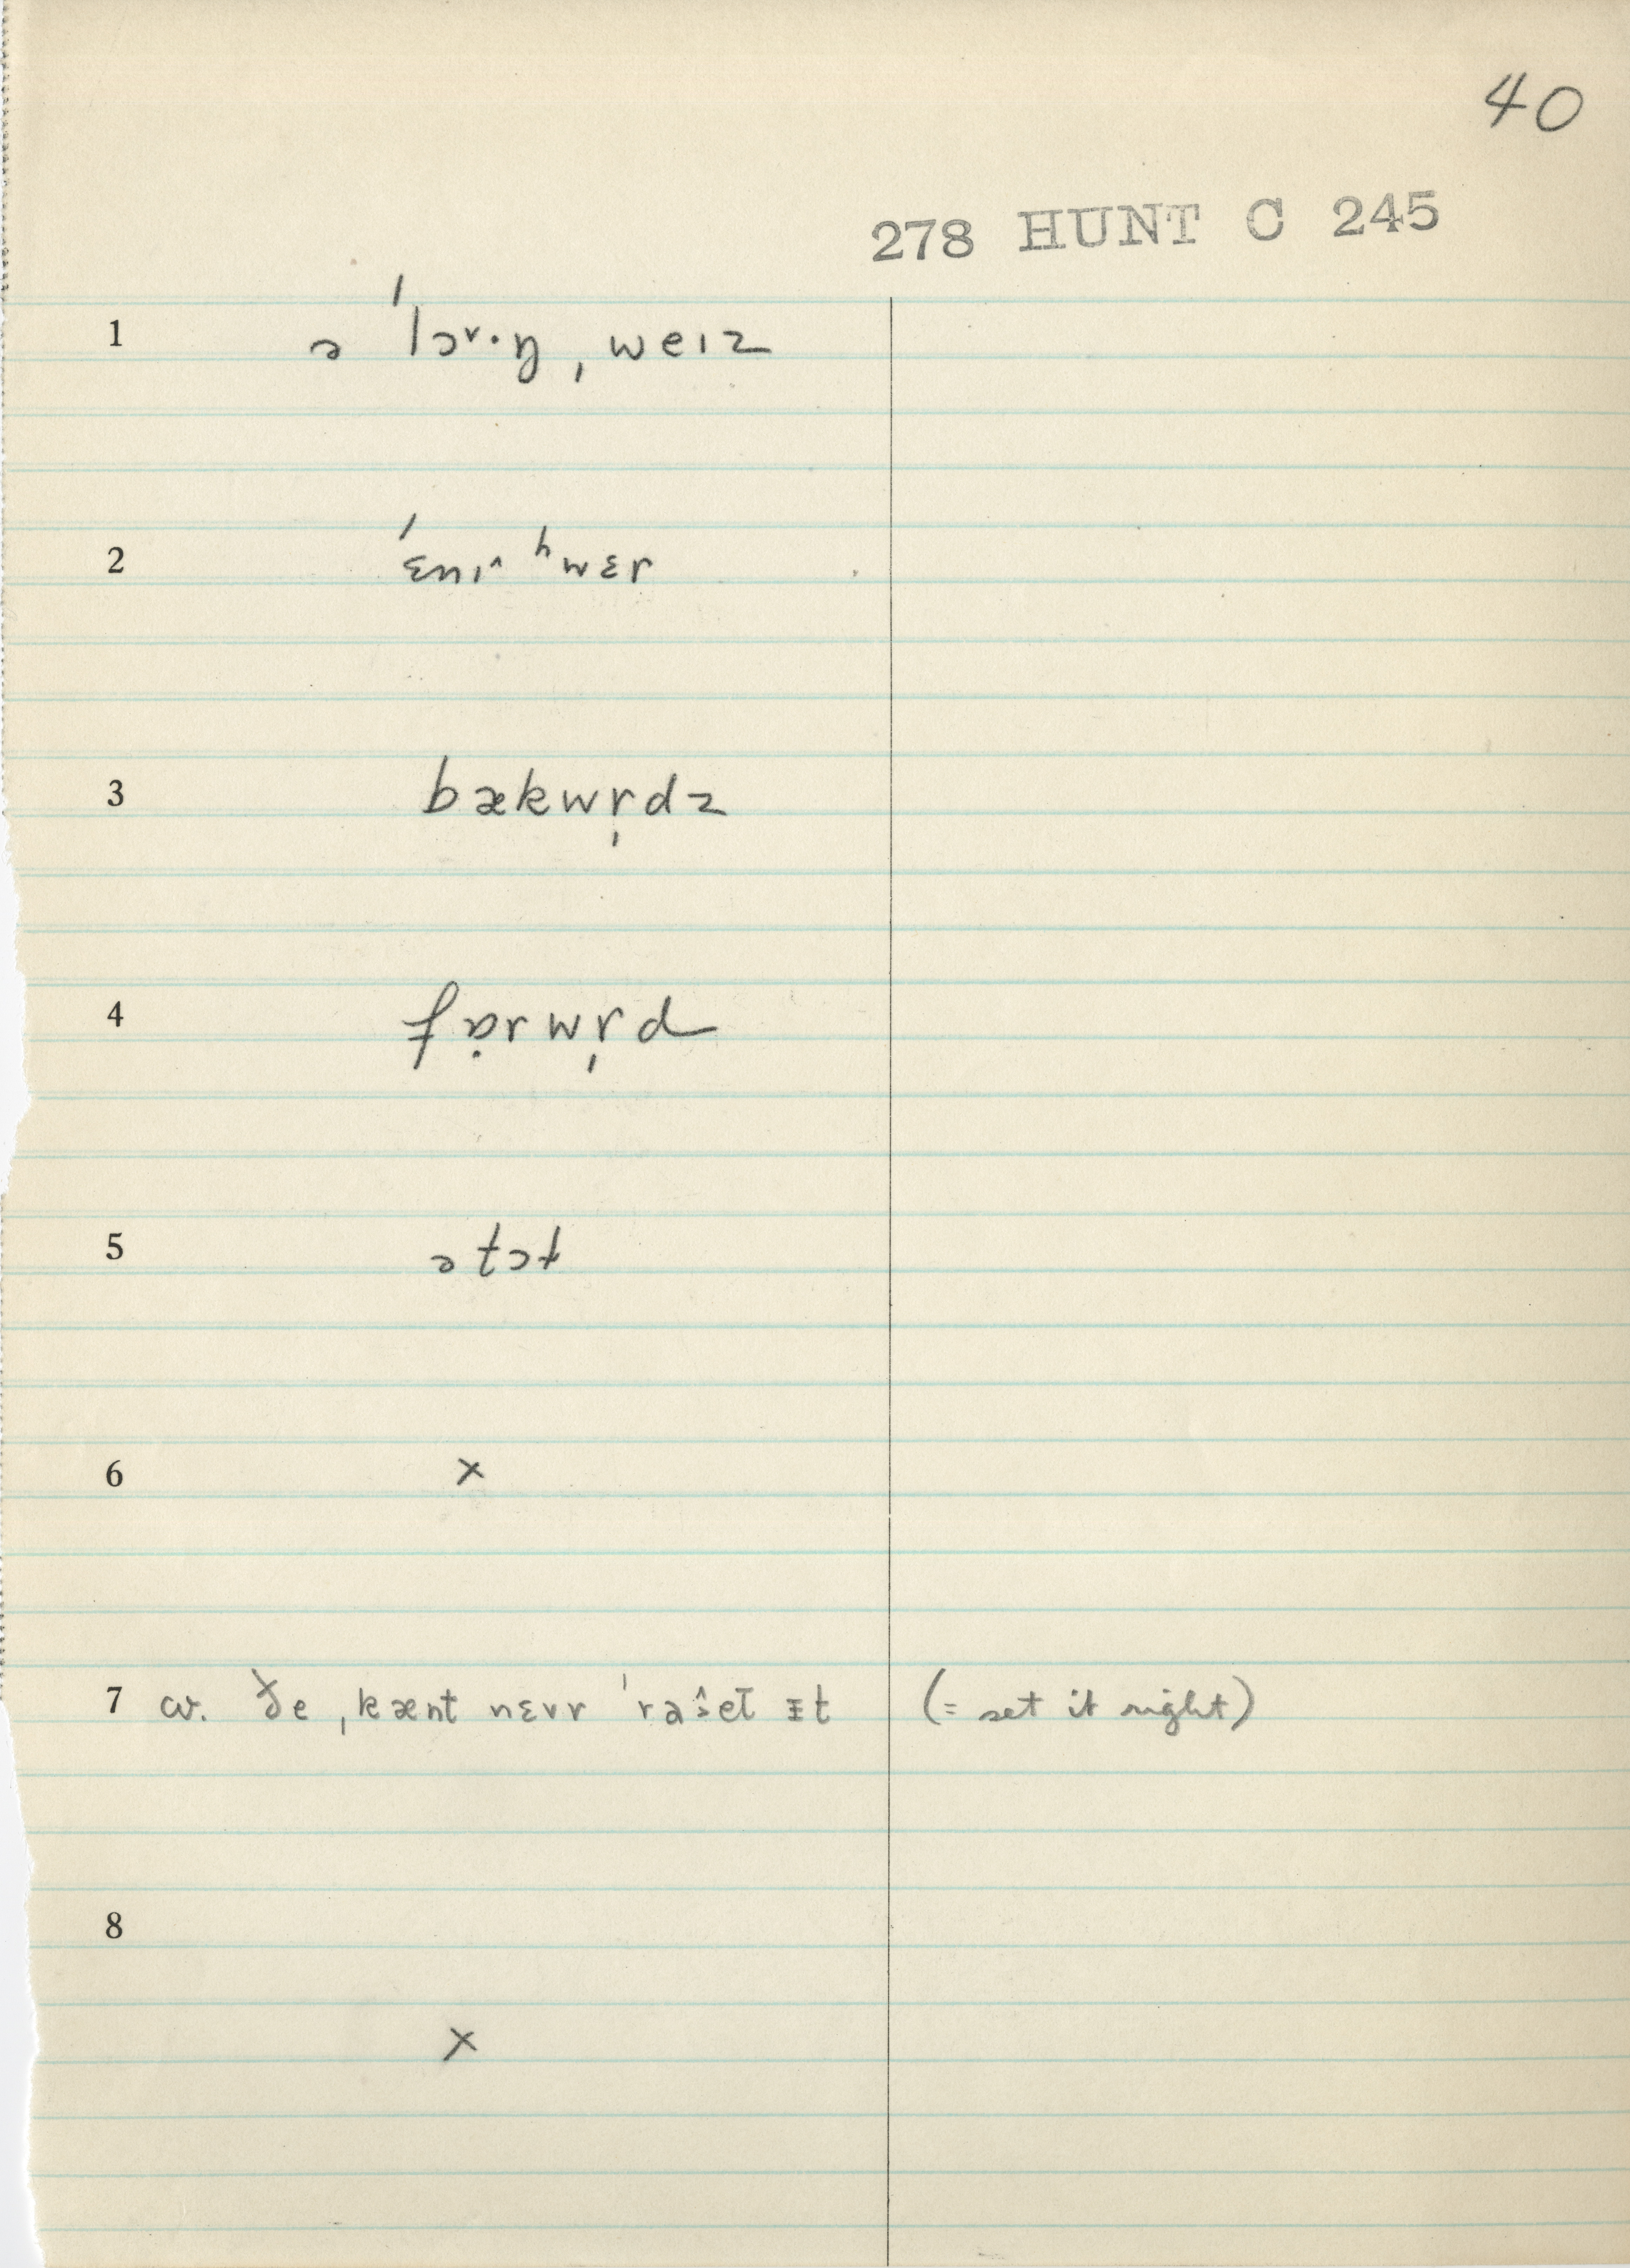 40
278 HUNT C 245
1 ə ˈlɔ˅·ŋ ˌweɪz
2 ˈɛnɪ^ ʰwɛr
3 bækwr̩dz
4 fɒ̣rwr̩d
5 ətɔt
6 x
7 cv. ðe ˌkænt nɛvr ˈraˆi̯set ɪt (= set it right)
8
x